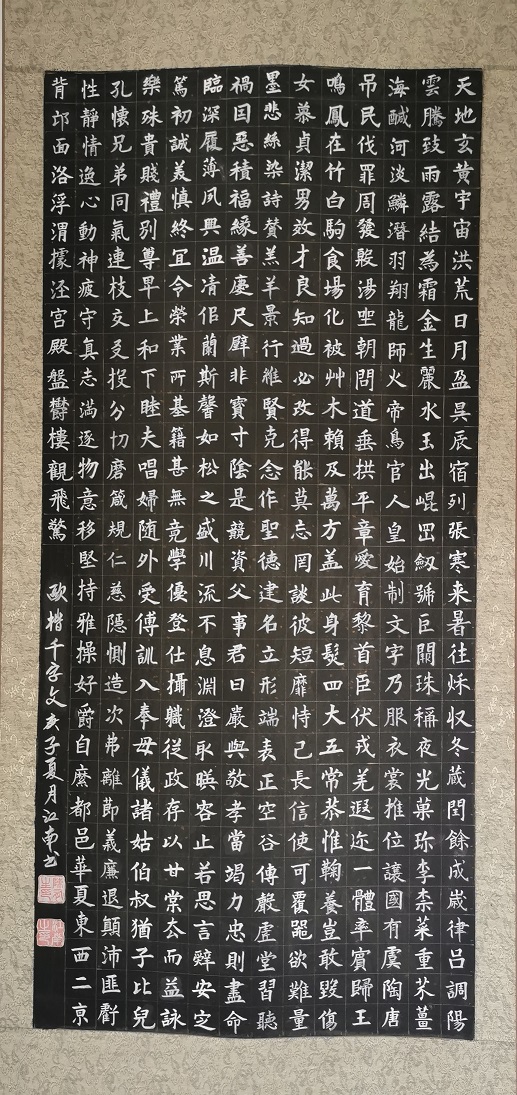 天地玄黄宇宙洪荒日月盈昃辰宿列張寒来暑往秋収冬蔵閏餘成歲律吕調陽
雲騰致雨露結為霜金生麗水玉出崐罡劔號巨闕珠稱夜光菓珎李柰菜重芥薑
海鹹河淡鱗潛羽翔龍師火帝鳥官人皇始制文字乃服衣裳推位讓國有虞陶唐
吊民伐罪周發殷湯坐朝問道垂拱平章愛育黎首臣伏戎羌遐迩一體率賓歸王
鳴鳳在竹白駒食場化被艸木賴及萬方盖此身髮四大五常恭惟鞠養豈敢毀傷
女慕貞潔男效才良知過必改得能莫忘罔談彼短靡恃己長信使可覆器欲難量
墨悲絲染詩賛羔羊景行維賢克念作聖德建名立形端表正空谷傳聲虛堂習聽
禍因惡積福緣善慶尺璧非寶寸陰是競資父事君曰嚴與敬孝當竭力忠則盡命
臨深履薄夙興温凊似蘭斯馨如松之盛川流不息淵澄取暎容止若思言辭安定
篤初誠美慎終宜令榮業所基籍甚無竟學優登仕攝職從政存以甘棠去而益詠
樂殊貴賤禮別尊卑上和下睦夫唱婦随外受傅訓入奉母儀諸姑伯叔猶子比兒
孔懷兄弟同氣連枝交友投分切磨箴規仁慈隱惻造次弗離節義廉退顛沛匪虧
性靜情逸心動神疲守真志満逐物意移堅持雅操好爵自縻都邑華夏東西二京
背邙面洛浮渭據涇宫殿盤欝樓觀飛驚
欧楷千字文庚子夏月江南书